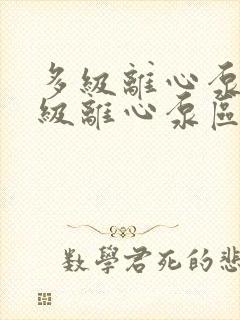 多級離心泵
級離心泵區
數學君死的悲